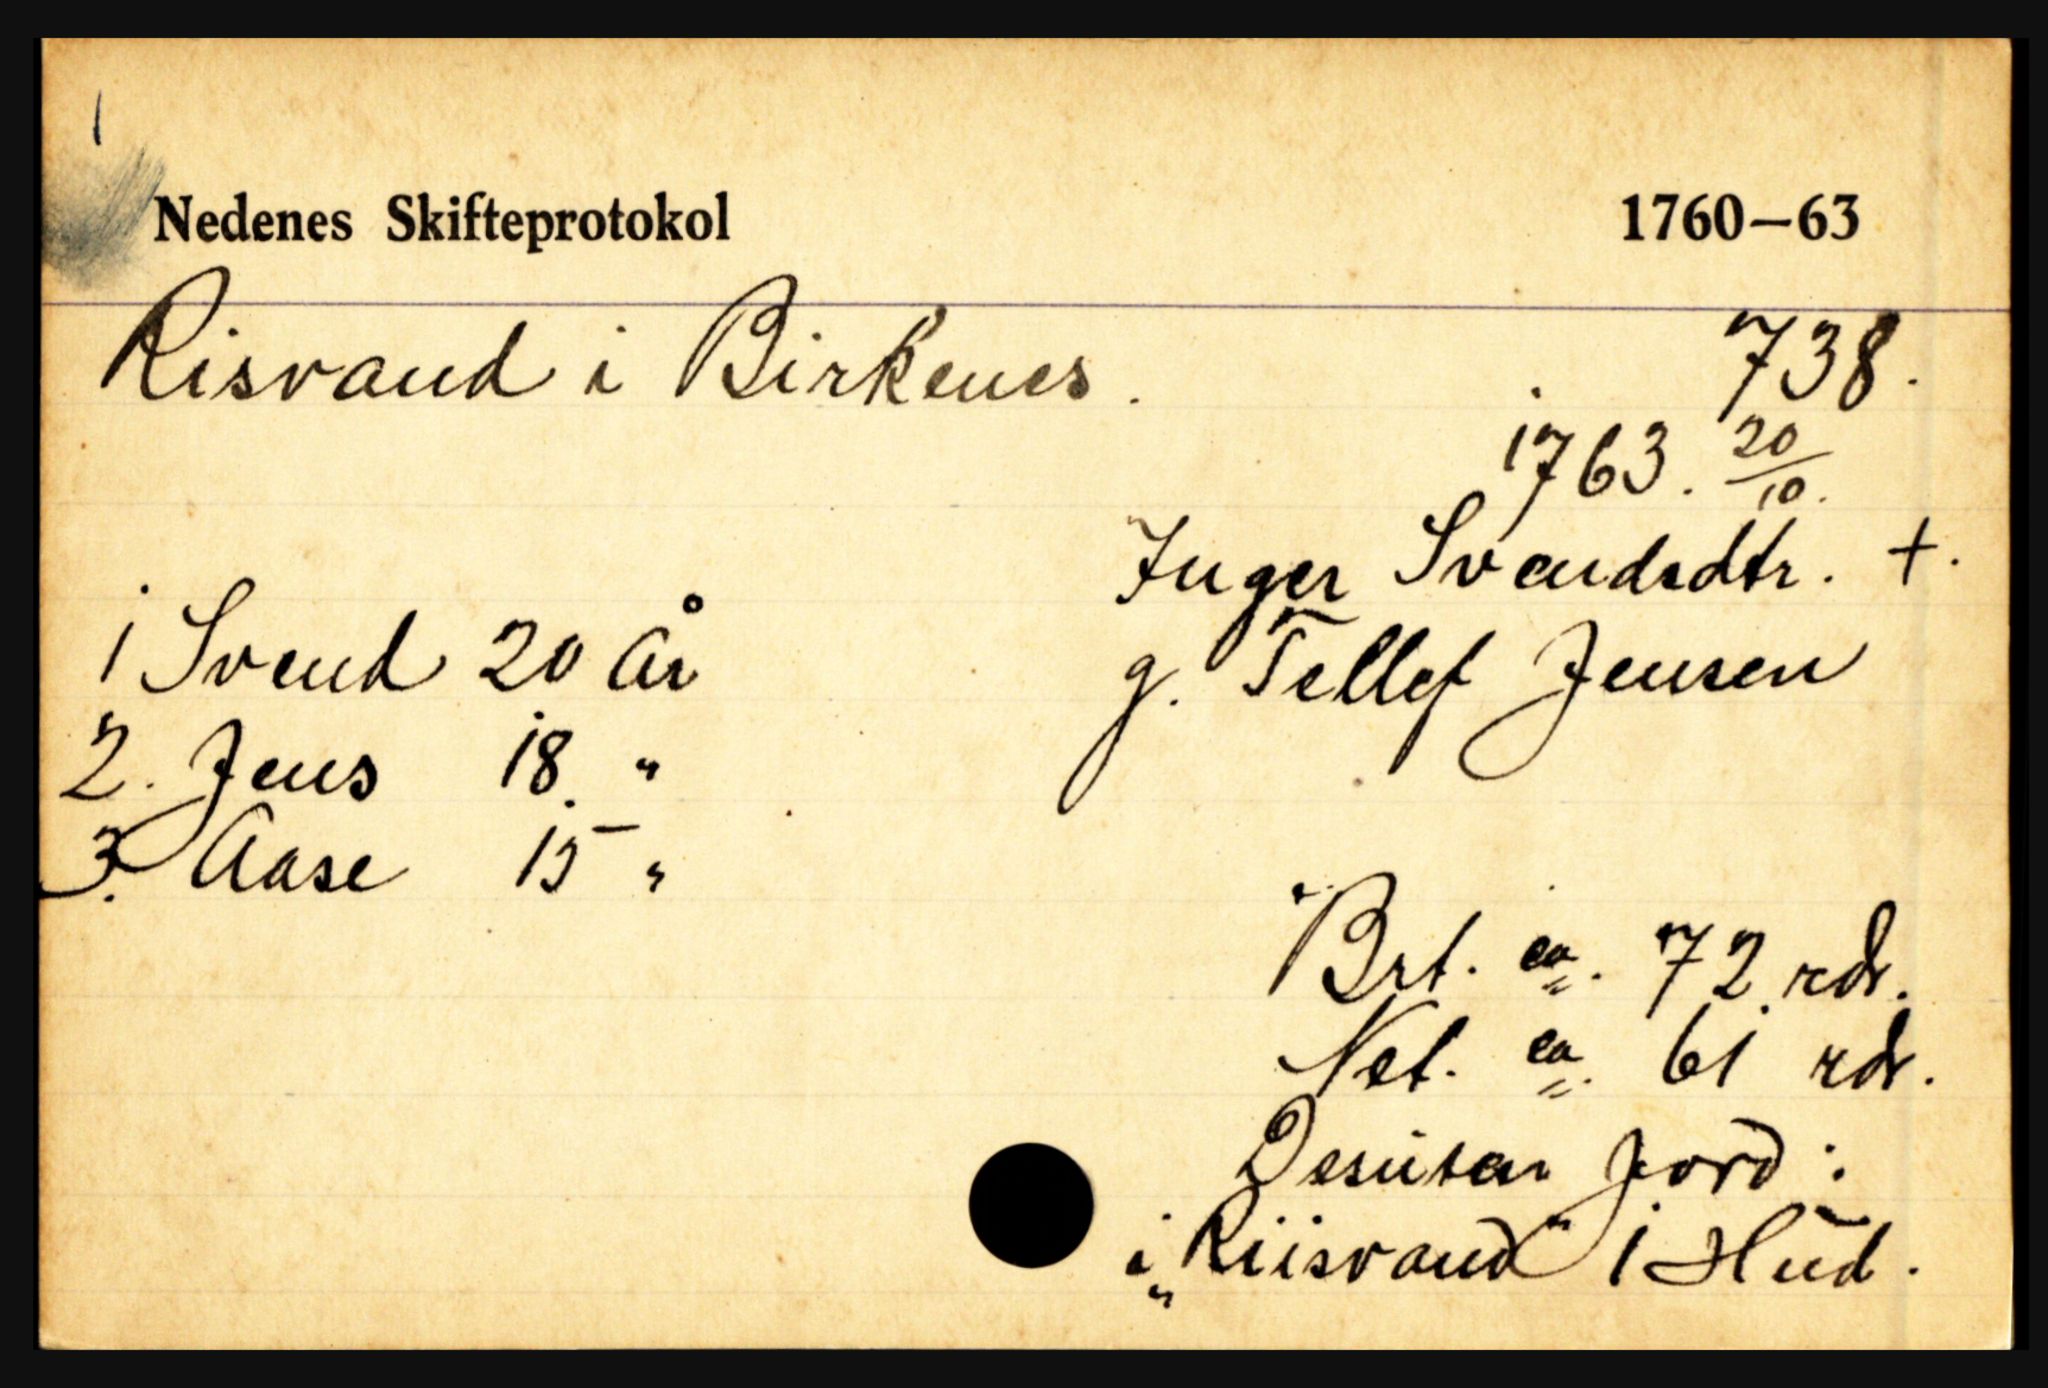 1
Nedenes Skifteprotokol 1760–63
Risvand i Birkenes. 738.
1763. 20/10.
Inger Svendsdtr. +.
g. Tellef Jensen
1 Svend 20 år
2. Jens 18. "
3. Aase 15 "
Brt. ca. 72 rdr.
Net. ca. 61 rdr.
Desuten jord:
i "Riisvand" 1 Hud.